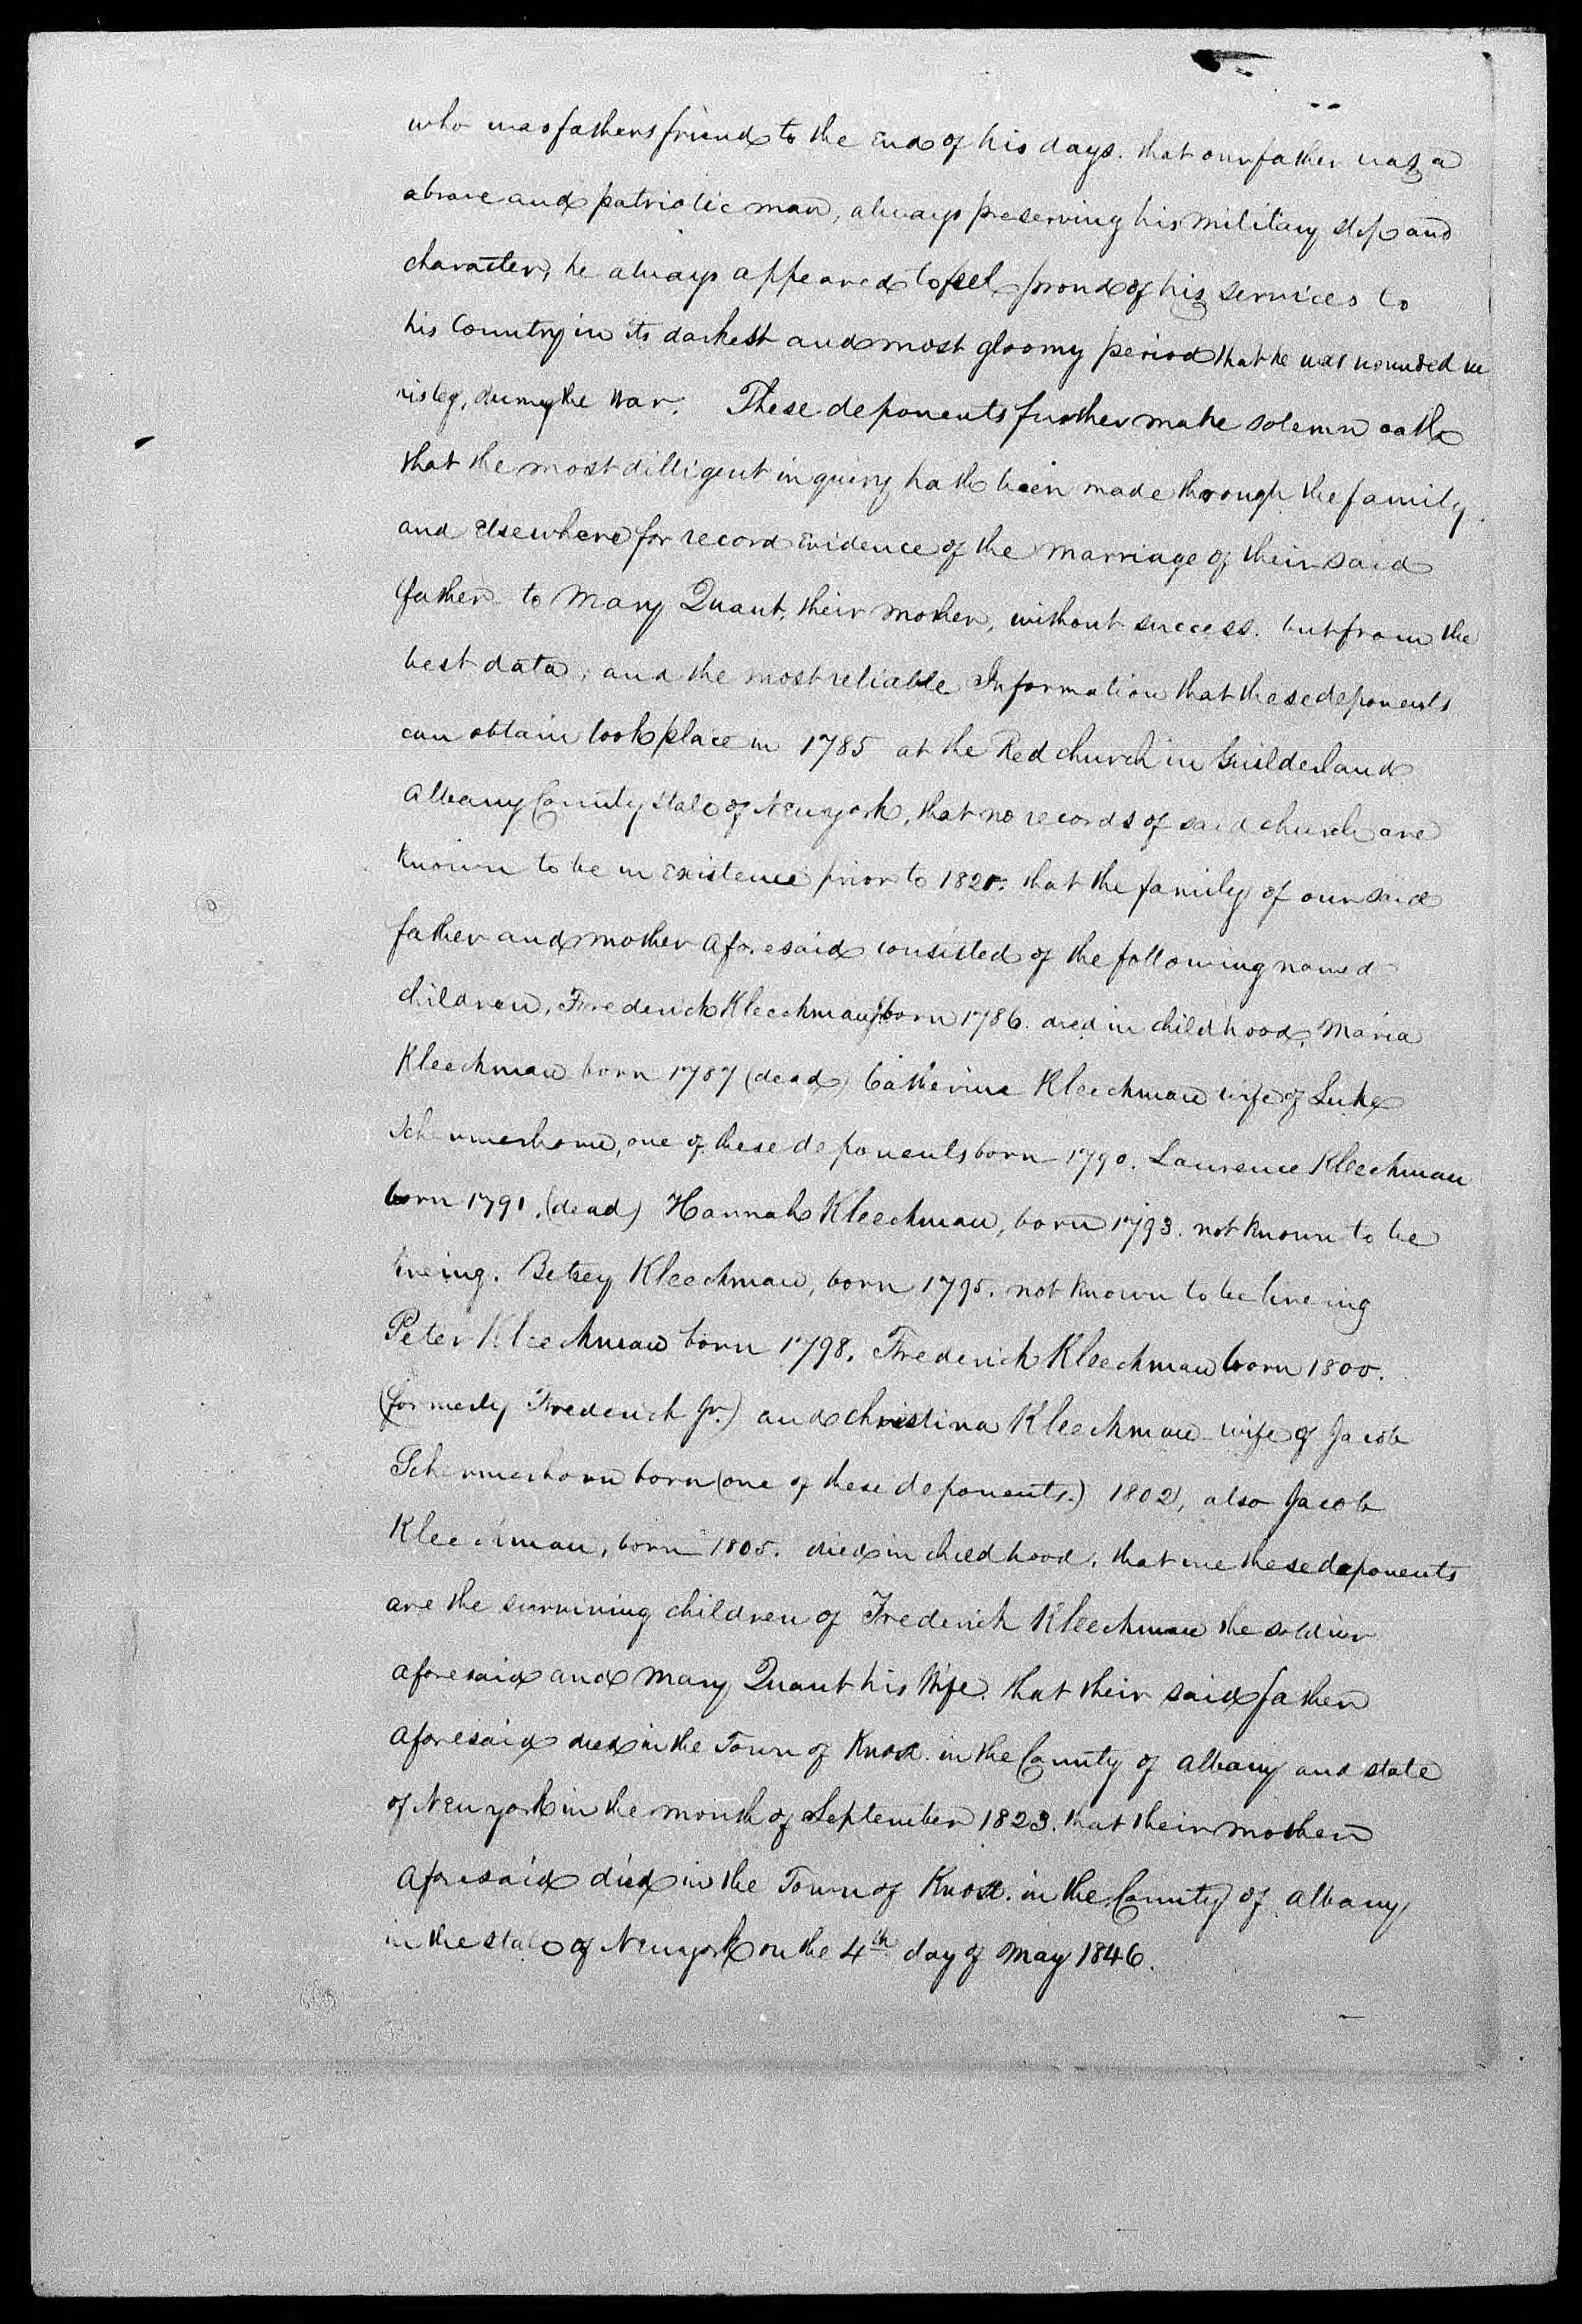 who was fathers friend to the End of his days. that our father was a
abrave and patriotic man, always preserving his military step and
character, he always appeared to feel proud of his services to
his Country in its darkest and most gloomy period that he was wounded in
his leg, during the War. These deponents further make solemn oath
that the most dilligent inquiry hath been made through the family
and Elsewhere for record Evidence of the marriage of their said
father to Mary Quant, their mother, without success. but from the
best data, and the most reliable Information that these deponents
can obtain took place in 1785 at the Red church in Guilderland
Albany County State of New york, that no records of said church are
known to be in Existence prior to 1820. that the family of our said
father and mother aforesaid consisted of the following named
children, Frederick Kleechman born 1786. died in childhood, Maria
Kleechman born 1787 (dead) Catherine Kleechman wife of Luke
Schermerhorn, one of these deponents born 1790. Laurence Kleechman
born 1791, (dead) Hannah Kleechman, born 1793. not known to be
liveing. Betsey Kleechman, born 1795. not known to be liveing
Peter Kleechman born 1798. Frederick Kleechman born 1800.
(formerly Frederick Jr.) and Christina Kleechman wife of Jacob
Schermerhorn born (one of these deponents.) 1802, also Jacob
Kleechman, born 1805. died in childhood. that we these deponents
are the surviving children of Frederick Kleechman the soldier
aforesaid and Mary Quant his Wife. that their said father
aforesaid died in the Town of Knox. in the County of Albany and state
of New york in the month of September 1823. that their mother
aforesaid died in the Town of Knox. in the County of Albany
in the state of New york on the 4th day of May 1846.